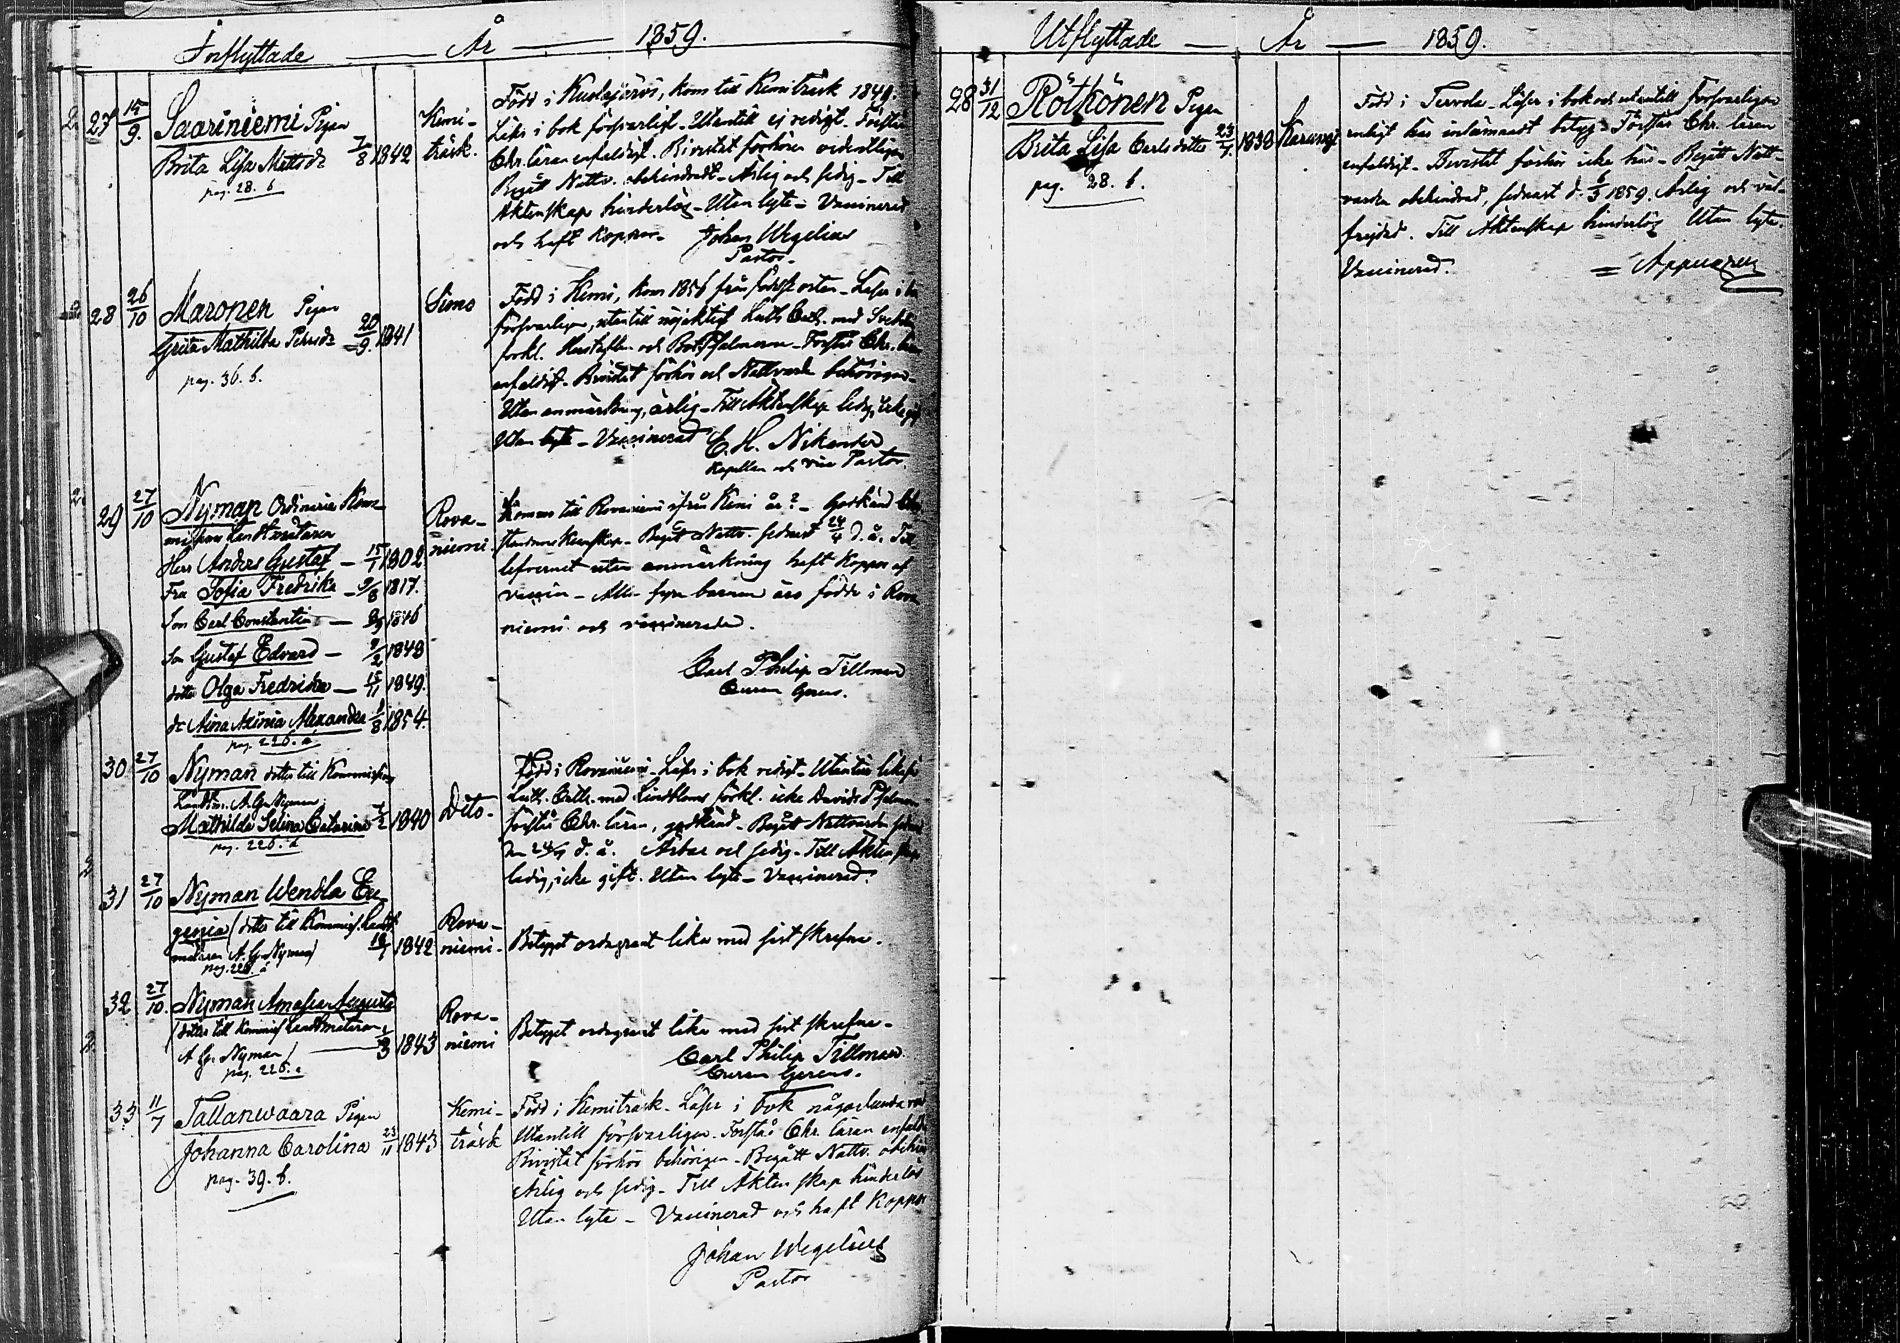 Inflyttade — År — 1859.
2. 27 15/9. Saariniemi Pigan
Brita Lisa Mattsdr 7/8 1842
pag. 28. b
Kemi-
träsk.
Född i Kuolajärvi, kom till Kemiträsk 1849.
Läser i bok försvarligt - Utantill ej redigt. Förstår
Chr. läran enfaldigt. Bivistat förhören ordentligen
Begått Nattv. obehindradt - Ärlig och sedig - Till
Äktenskap hinderlös - Utan lyte - Vaccinerad
och haft koppor.
Johan Wegelius
Pastor.
2 28 26/10 Maronen Pigan
Greta Mathilda Petersdr 20/9. 1841
pag. 36. b.
Simo
Född i Kemi, kom 1856 från födelseorten - Läser i bok
försvarligen, utantill nöjaktigt Luth. Cath. med Svebilii
förkl. Hustaflan och Bot Psalmerna - Förstår Chr. läran
enfaldigt - Bivistat förhör och Nattvard behörigen -
Utan anmärkning, ärlig - Till Äktenskap ledig, icke gift
Utan lyte - Vaccinerad
C. H. Nikander
Kapellan och vice Pastor.
2. 29 27/10 Nyman Ordinarie Kom-
missions Landtmätaren
Herr Anders Gustaf — 15/1 1802
Fru Sofia Fredrika — 9/8 1817.
Son Carl Constantin — 1846
Son Gustaf Edvard — 9/2 1848
dotter Olga Fredrika — 15/11 1849.
dr Aina Alexandra 1/8 1854.
pag. 226. a
Rova-
niemi.
Komna till Rovaniemi ifrån Kemi år? - Godkänd Chri-
stendoms Kunskap - Begått Nattv. sednast 24/4 d. å. Till
lefvernet utan anmärkning haft koppor af
vaccin - Alla fyra barnen äro födde i Rova
niemi och vaccinerade.
Carl Philip Tillman
Curam Gerens.
30. 27/10 Nyman dotter till Kommissions
Landtm. A. G. Nyman
Mathilda Selina Catarina 1840
pag. 226. a
Dito.
Född i Rovaniemi - Läser i bok redigt - Utantill likaså
Luth. Cath. med Lindbloms förkl. icke Davids Psalmer
förstår Chr. läran, godkänd - Begått Nattvarden sednast
den 24/4 d. å. Ärbar och sedig - Till Äktenskap
ledig, icke gift. Utan lyte - Vaccinerad.
2 31 27/10 Nyman Wendla Eu-
genia (dotter till Kommiss. Landt-
mätaren A. G. Nyman) 1842
pag. 226. a
Rova-
niemi.
Betyget ordagrant lika med sist skrefne.
2. 32 27/10. Nyman Amalia Augusta
(dotter till Kommiss Landtmätaren
A. G. Nyman) — 1843
pag. 226. a
Rova-
niemi
Betyget ordagrant lika med sist skrefne -
Carl Philip Tillman
Curam Gerens.
33 11/7 Tallanwaara Pigan
Johanna Carolina 23/11 1843
pag. 39. b.
Kemi-
träsk
Född i Kemiträsk - Läser i bok någorlunda
Utantill försvarligen. Förstår Chr. läran enfaldigt
Bivistat förhör behörigen - Begått Nattv. obehin
Ärlig och sedig - Till Äktenskap hinderlös
Utan lyte - Vaccinerad och haft koppor
Johan Wegelius
Pastor
Utflyttade — År — 1859.
28 31/12 Rötkönen Pigan
Brita Lisa Carlsdotter 23/7. 1838
pag. 28. b.
Karungi
Född i Tervola - Läser i bok och utantill försvarligen
enligt här inlämnadt betyg - Förstår Chr. läran
enfaldigt - Bevistat förhör icke här - Begått Natt-
varden obehindrad, sednast d. 6/3 1859. Ärlig och väl-
frejdad. Till Äktenskap hinderlös Utan lyte.
Vaccinerad.